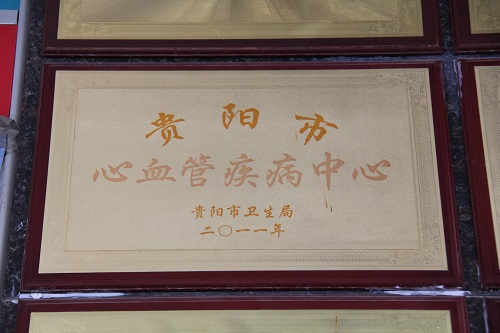 贵阳市
心血管疾病中心
贵阳市卫生局
二〇一一年